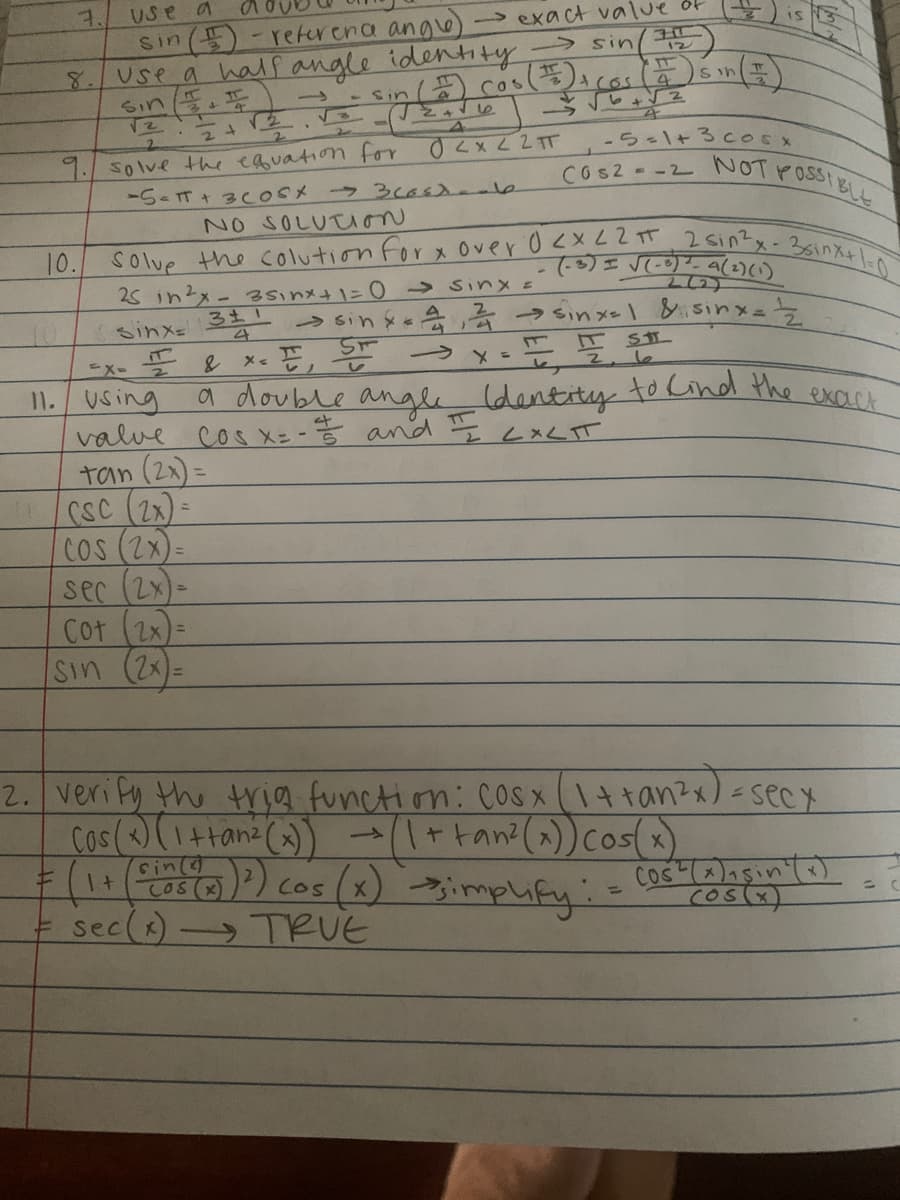 7. use a
sin (π/3) - reference angle) → exact value of (π/3) is √3/2
8. Use a half angle identity → sin(7π/12)
sin (π/3 + π/4) → = sin(π/4) cos(π/3) + cos(π/4) sin(π/3)
√2/2 · 1/2 + √2/2 · √3/2 = (√2+√6/4) → √6+√2/4
9. solve the equation for 0<x<2π, -5=1+3cosx
-5=π+3cosx → 3cosx=-6 cos2=-2 NOT POSSIBLE
NO SOLUTION
10. Solve the colution for x over 0<x<2π 2sin²x-3sinx+1=0
2sin²x-3sinx+1=0 → sinx = -(-3)±√(-3)²-4(2)(1)/2(2)
sinx= 3±1/4 → sinx=4/4, 2/4 → sinx=1 & sinx=1/2
=x= π/2 & x= π/6, 5π/6 → x = π/6, π/2, 5π/6
11. using a double angle identity to find the exact
value cos x=-4/5 and π/2 <x<π
tan (2x)=
csc (2x)=
cos (2x)=
sec (2x)=
cot (2x)=
sin (2x)=
2. verify the trig function: cosx(1+tan²x)=secx
cos(x)(1+tan²(x)) → (1+tan²(x))cos(x)
= (1+(sin(x)/cos(x))²) cos(x) → simplify: = cos²(x)+sin²(x)/cos(x) =
= sec(x) → TRUE